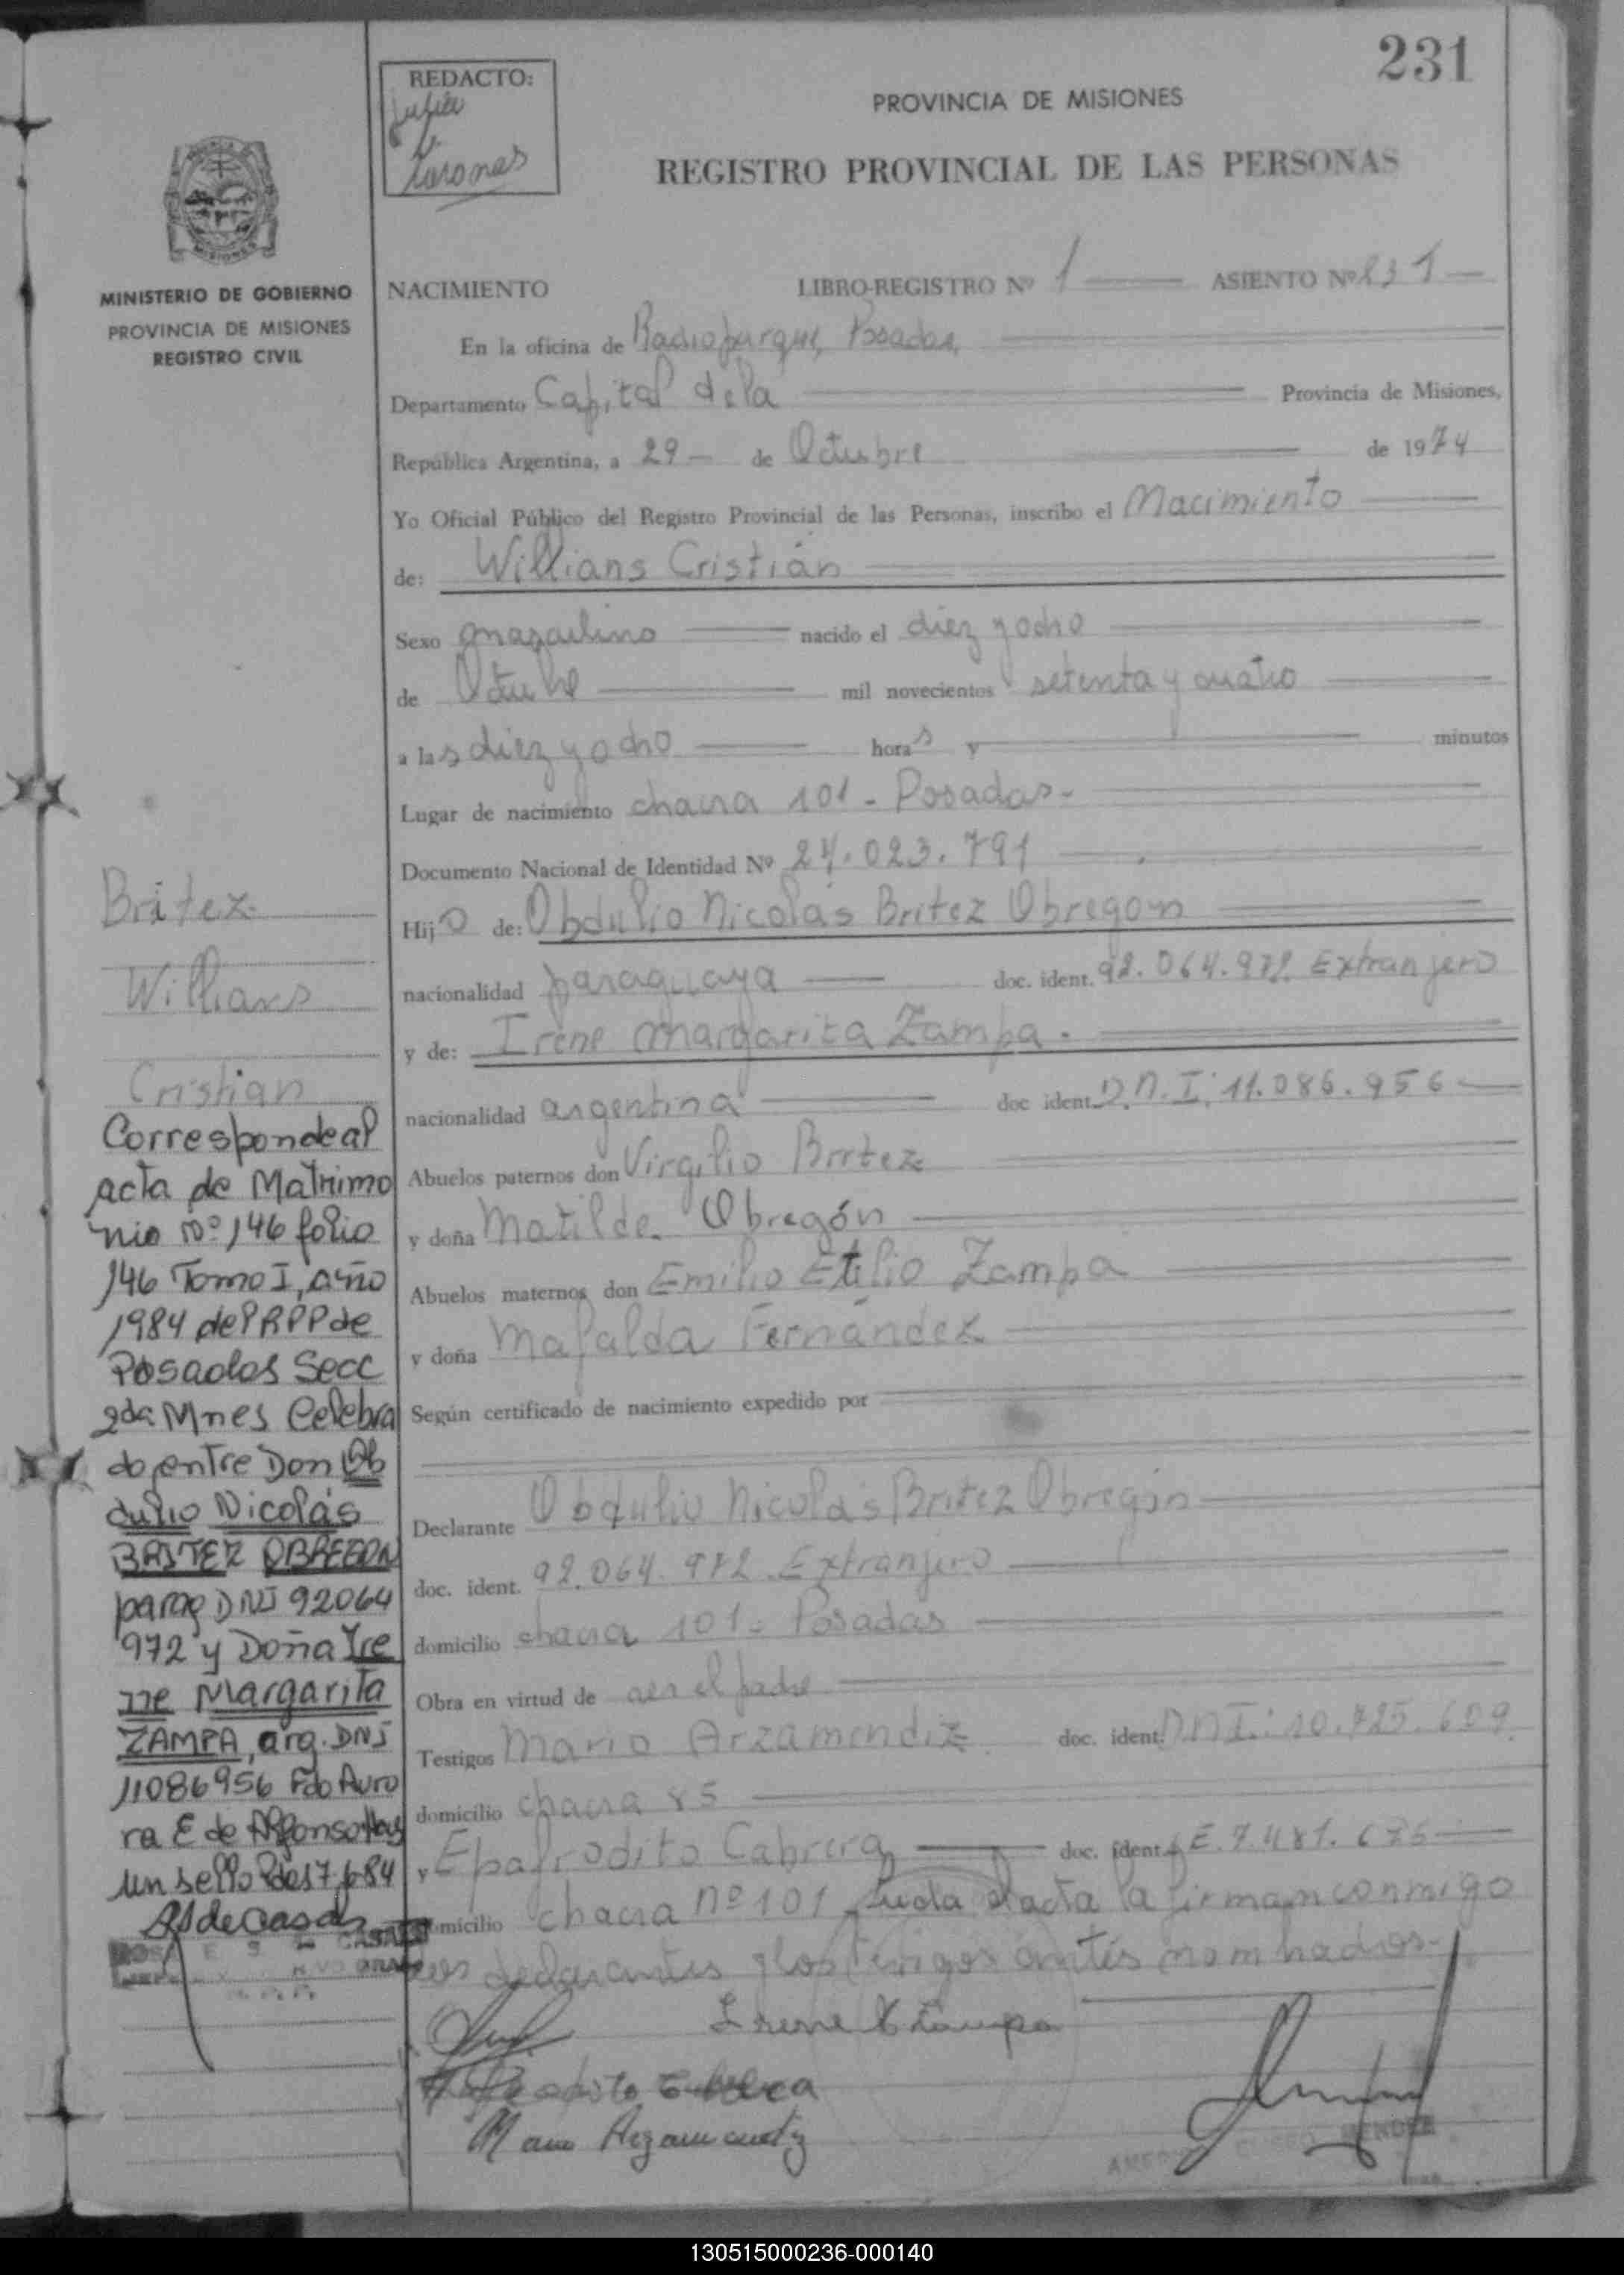 231
REDACTO:
PROVINCIA DE MISIONES
REGISTRO PROVINCIAL DE LAS PERSONAS
MISIONES
MINISTERIO DE GOBIERNO
PROVINCIA DE MISIONES
REGISTRO CIVIL
NACIMIENTO LIBRO-REGISTRO Nº 1 ASIENTO Nº 231
En la oficina de Radioparque, Posadas,
Departamento Capital de la Provincia de Misiones,
República Argentina, a 29 de Octubre de 1974
Yo Oficial Público del Registro Provincial de las Personas, inscribo el Nacimiento
de: Willians Cristián
Sexo masculino nacido el diez y ocho
de Octubre mil novecientos setenta y cuatro
a las diez y ocho horas y minutos
Lugar de nacimiento chacra 101 - Posadas -
Documento Nacional de Identidad Nº 24.023.791
Hijo de: Obdulio Nicolás Britez Obregón
nacionalidad paraguaya doc. ident. 92.064.972 Extranjero
y de: Irene Margarita Zampa.
nacionalidad argentina doc ident. D.N.I: 11.086.956
Abuelos paternos don Virgilio Britez
y doña Matilde Obregón
Abuelos maternos don Emilio Etilio Zampa
y doña Mafalda Fernández
Según certificado de nacimiento expedido por
Declarante Obdulio Nicolás Britez Obregón
doc. ident. 92.064.972 Extranjero
domicilio chacra 101 - Posadas
Obra en virtud de ser el padre
Testigos Mario Arzamendiz doc. ident. DNI.: 10.725.609
domicilio chacra 85
y Epafrodito Cabrera doc. ident. LE. 7.481.
domicilio chacra nº 101 Leida el acta la firman conmigo
los declarantes y los testigos antes nombrados.-
Irene Zampa
Mario Arzamendiz
Britez
Willians
Cristian
Corresponde al
acta de Matrimo
nio Nº 146 folio
146 Tomo I, año
1984 del RPP de
Posadas Secc
2da Mnes Celebra
do entre Don Ob
dulio Nicolás
BRITEZ OBREGON
parag DNI 92064
972 y Doña Ire
ne Margarita
ZAMPA, arg. DNI
11086956 Fdo Auro
ra E de Alfonso Hay
un sello
CASALS
130515000236-000140